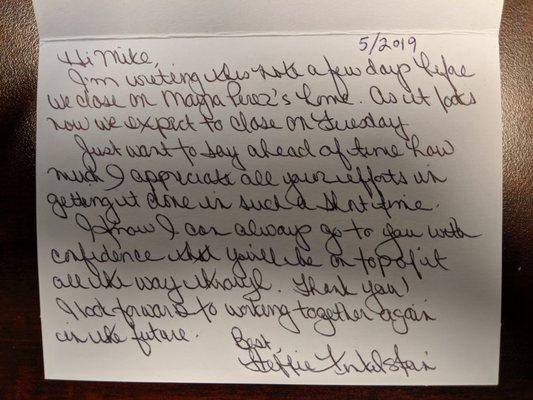 5/2019
Hi Mike,
I'm writing this note a few days before
we close on Mayra Perez's home. As it looks
now we expect to close on Tuesday.
Just want to say ahead of time how
much I appreciate all your efforts in
getting it done in such a short time.
I know I can always go to you with
confidence that you'll be on top of it
all the way through. Thank you!
I look forward to working together again
in the future.
Best,
Steffie Finkelstein